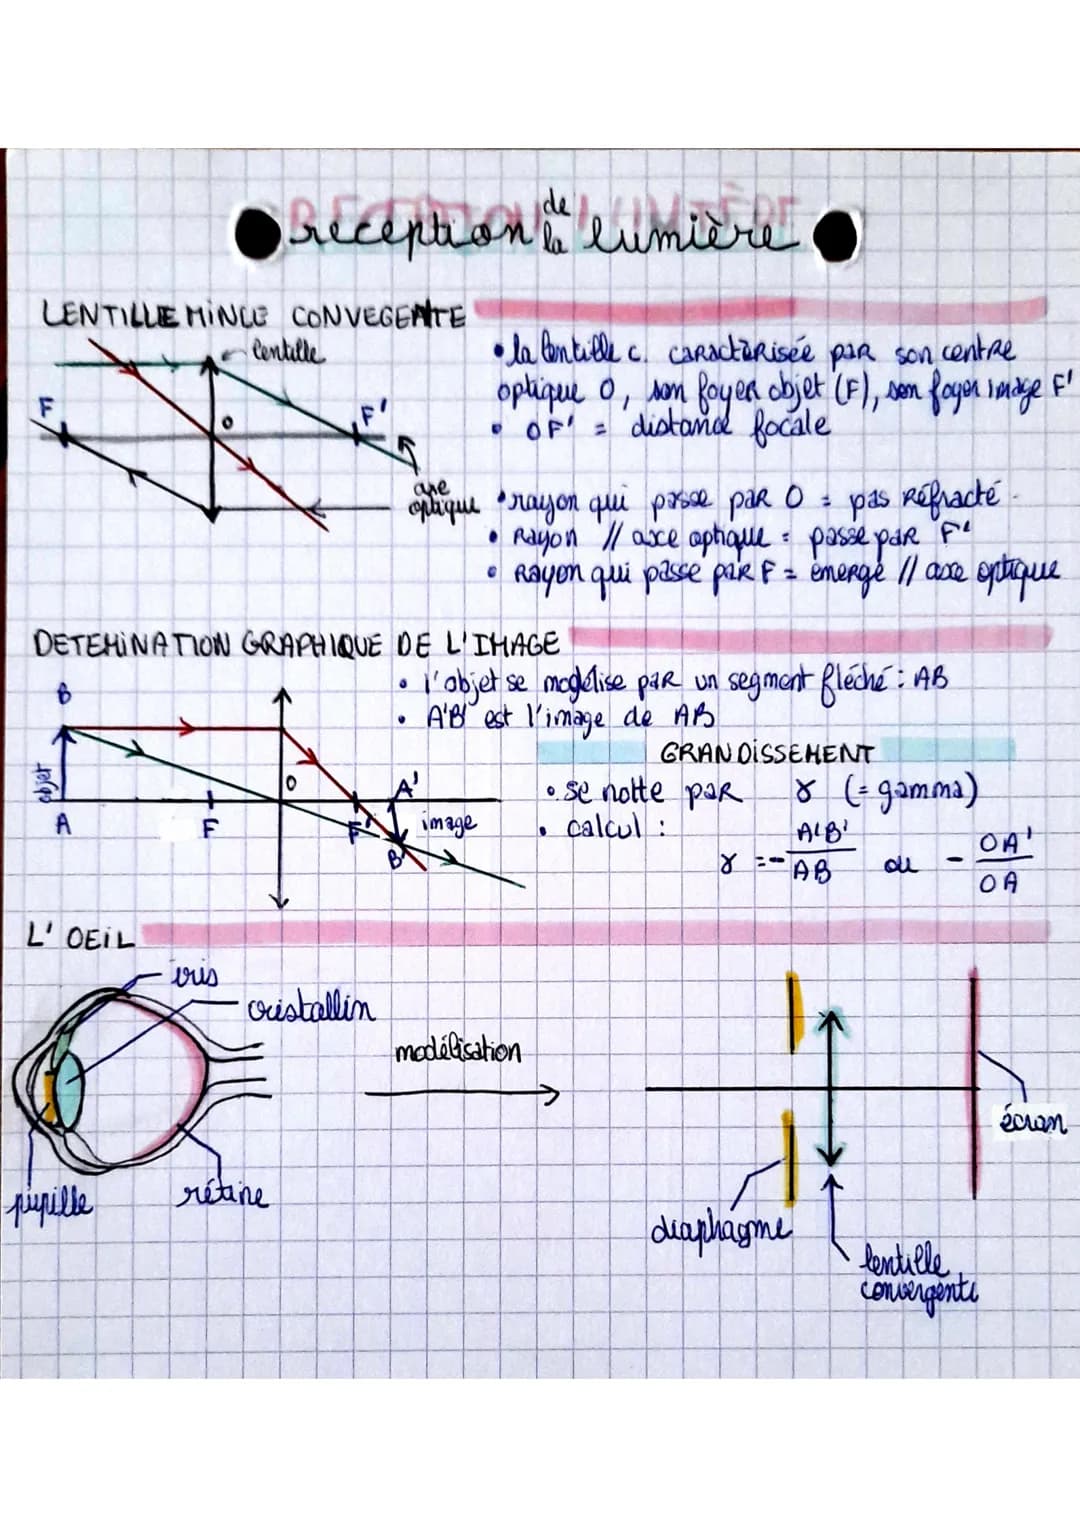 réception de la lumière
LENTILLE MINCE CONVEGENTE
lentille
F
O
F'
axe optique
• la lentille c. caractèrisée par son centre
optique O, son foyer objet (F), son foyer image F'
• OF' = distance focale
• rayon qui passe par O = pas réfracté.
• Rayon // axe optique = passe par F'
• Rayon qui passe par F = émerge // axe optique
DETEMINATION GRAPHIQUE DE L'IMAGE
• l'objet se modélise par un segment fléché : AB
• A'B' est l'image de AB
B
objet
A
F
O
F'
A'
image
B'
GRANDISSEMENT
• se notte par γ (= gamma)
• calcul :
γ = - A'B' / AB ou - OA' / OA
L'OEIL
iris
cristallin
pupille
rétine
modélisation
écran
diaphagme
lentille
convergente